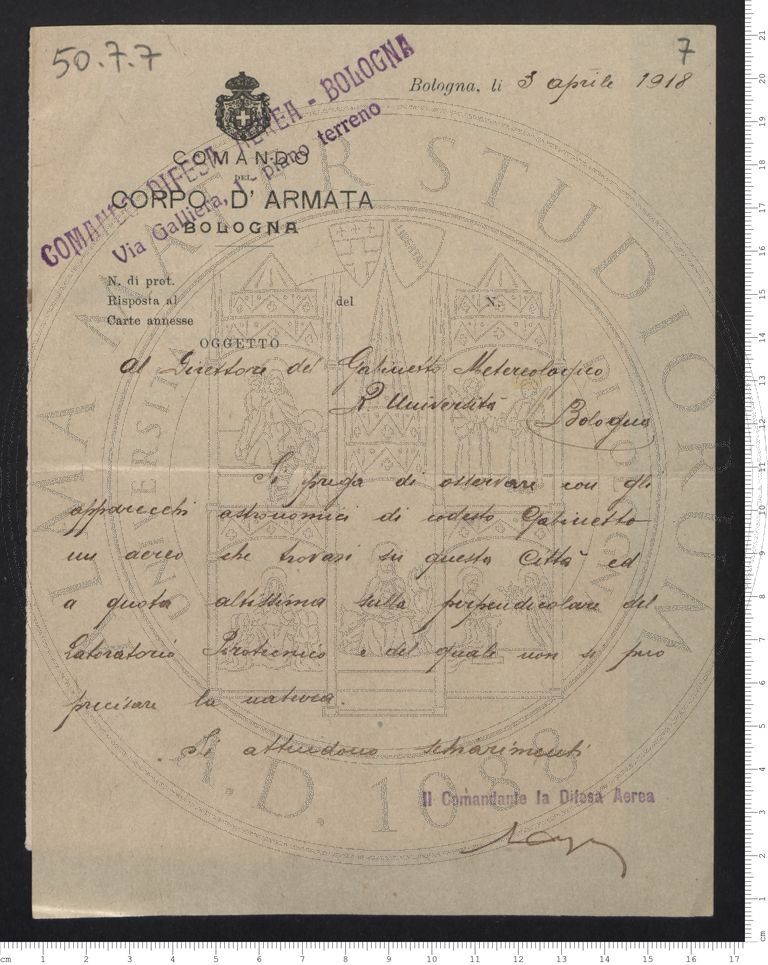 50.7.7
7
Bologna, li 3 aprile 1918
COMANDO DIFESA AEREA - BOLOGNA
Via Galliera, 1 - piano terreno
COMANDO
DEL
CORPO D'ARMATA
BOLOGNA
N. di prot.
Risposta al del N.
Carte annesse
OGGETTO
Al Direttore del Gabinetto Metereologico
R. Università
Bologna
Si prega di osservare con gli
apparecchi astronomici di codesto Gabinetto
un aereo che trovasi su questa Città ed
a quota altissima sulla perpendicolare del
Laboratorio Pirotecnico e del quale non si può
precisare la natura.
Si attendono schiarimenti
Il Comandante la Difesa Aerea
ALMA MATER STUDIORUM
A.D. 1088